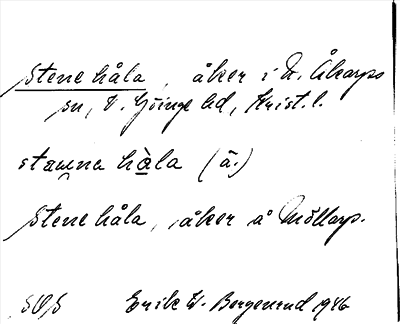 Stenehåla, åker i N. Åkarps
sn, V. Göinge hd, Krist. l.
stæu̯na hàla (ä.)
Stenehåla, åker å Möllarp.
SOS Erik W. Bergenrud 1946